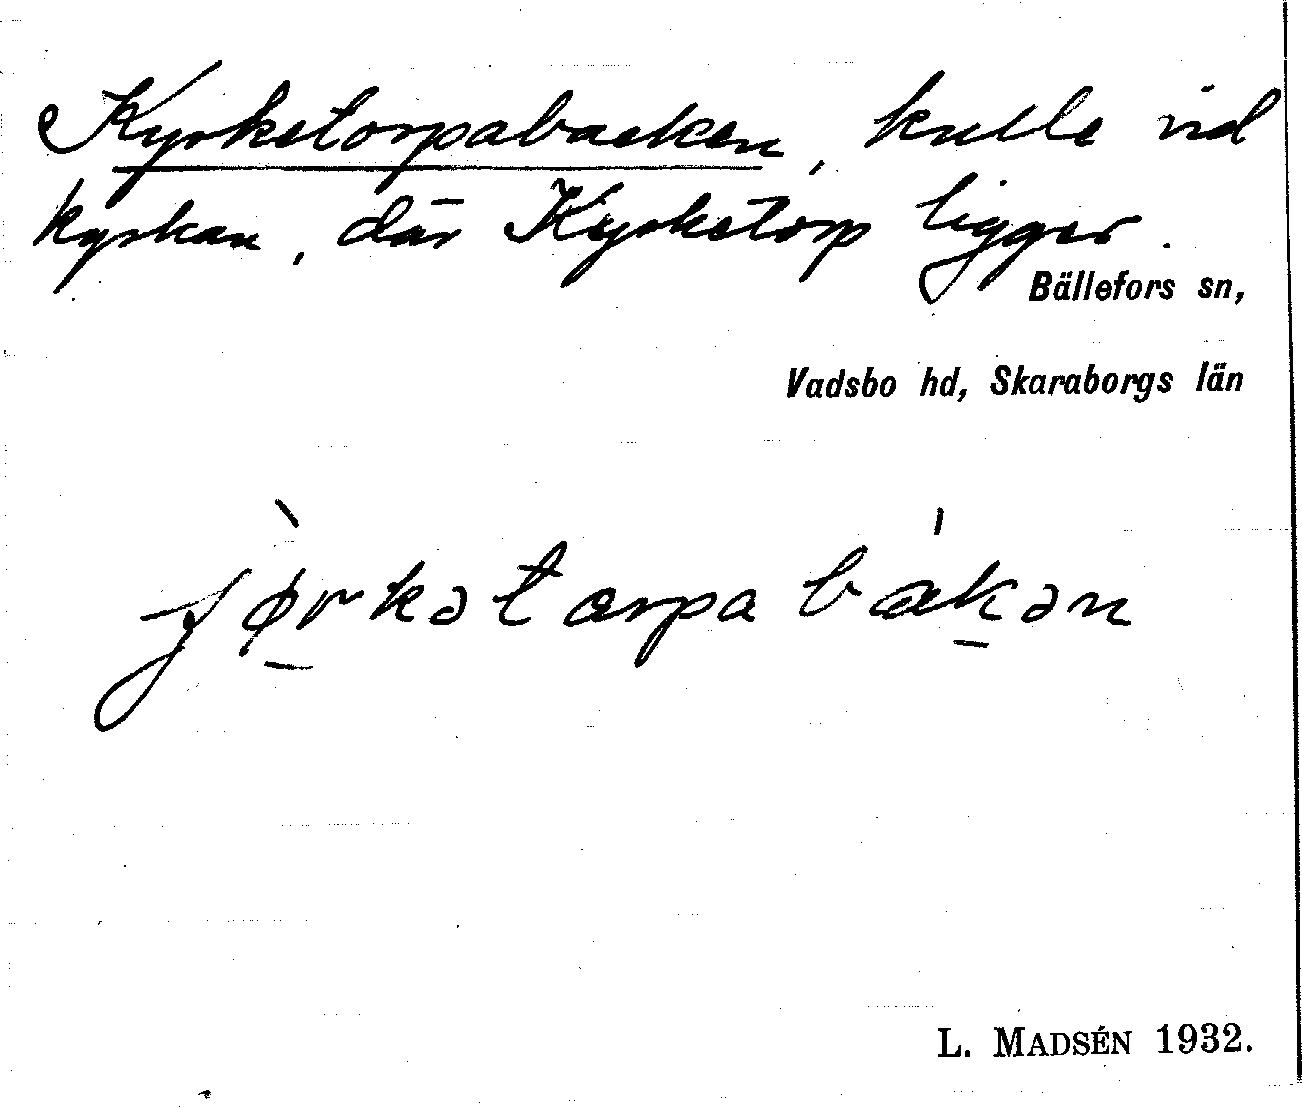 Kyrketorpabacken, kulle vid
kyrkan, där Kyrketorp ligger.
Bällefors sn,
Vadsbo hd, Skaraborgs län
ʃø̀rkətorpabákən
L. MADSÉN 1932.